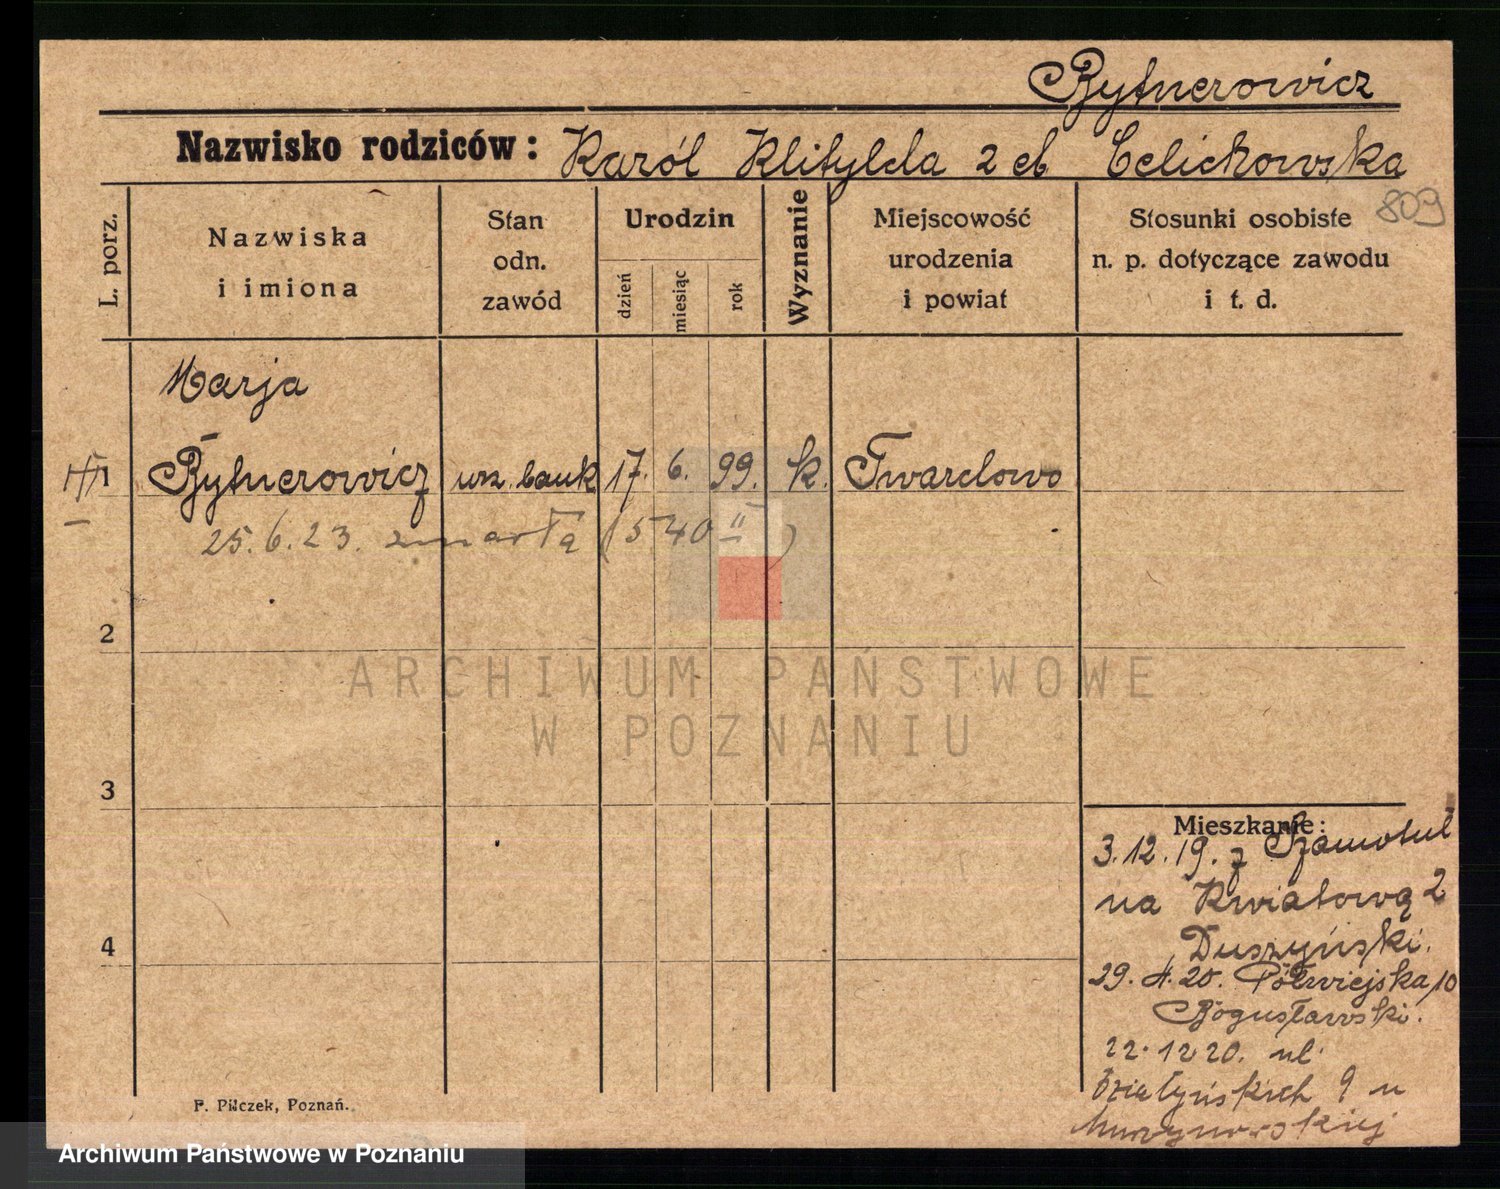 Bytnerowicz
Nazwisko rodziców: Karól Klitylda z d Celichowska
809
L. porz.
Nazwiska i imiona
Stan odn. zawód
Urodzin
dzień
miesiąc
rok
Wyznanie
Miejscowość urodzenia i powiat
Stosunki osobiste n. p. dotyczące zawodu i t. d.
Marja
1 Bytnerowicz urz. bank 17. 6. 99. k. Twardowo
25.6.23. zmarła (540 II)
2
3
4
Mieszkanie:
3.12.19. z Szamotuł
na Kwiatową 2
Duszyński.
29. 4. 20. Półwiejska 10
Bogusławski.
22.12 20. ul.
Działyńskich 9 u
F. Pilczek, Poznań.
ARCHIWUM PAŃSTWOWE
W POZNANIU
Archiwum Państwowe w Poznaniu